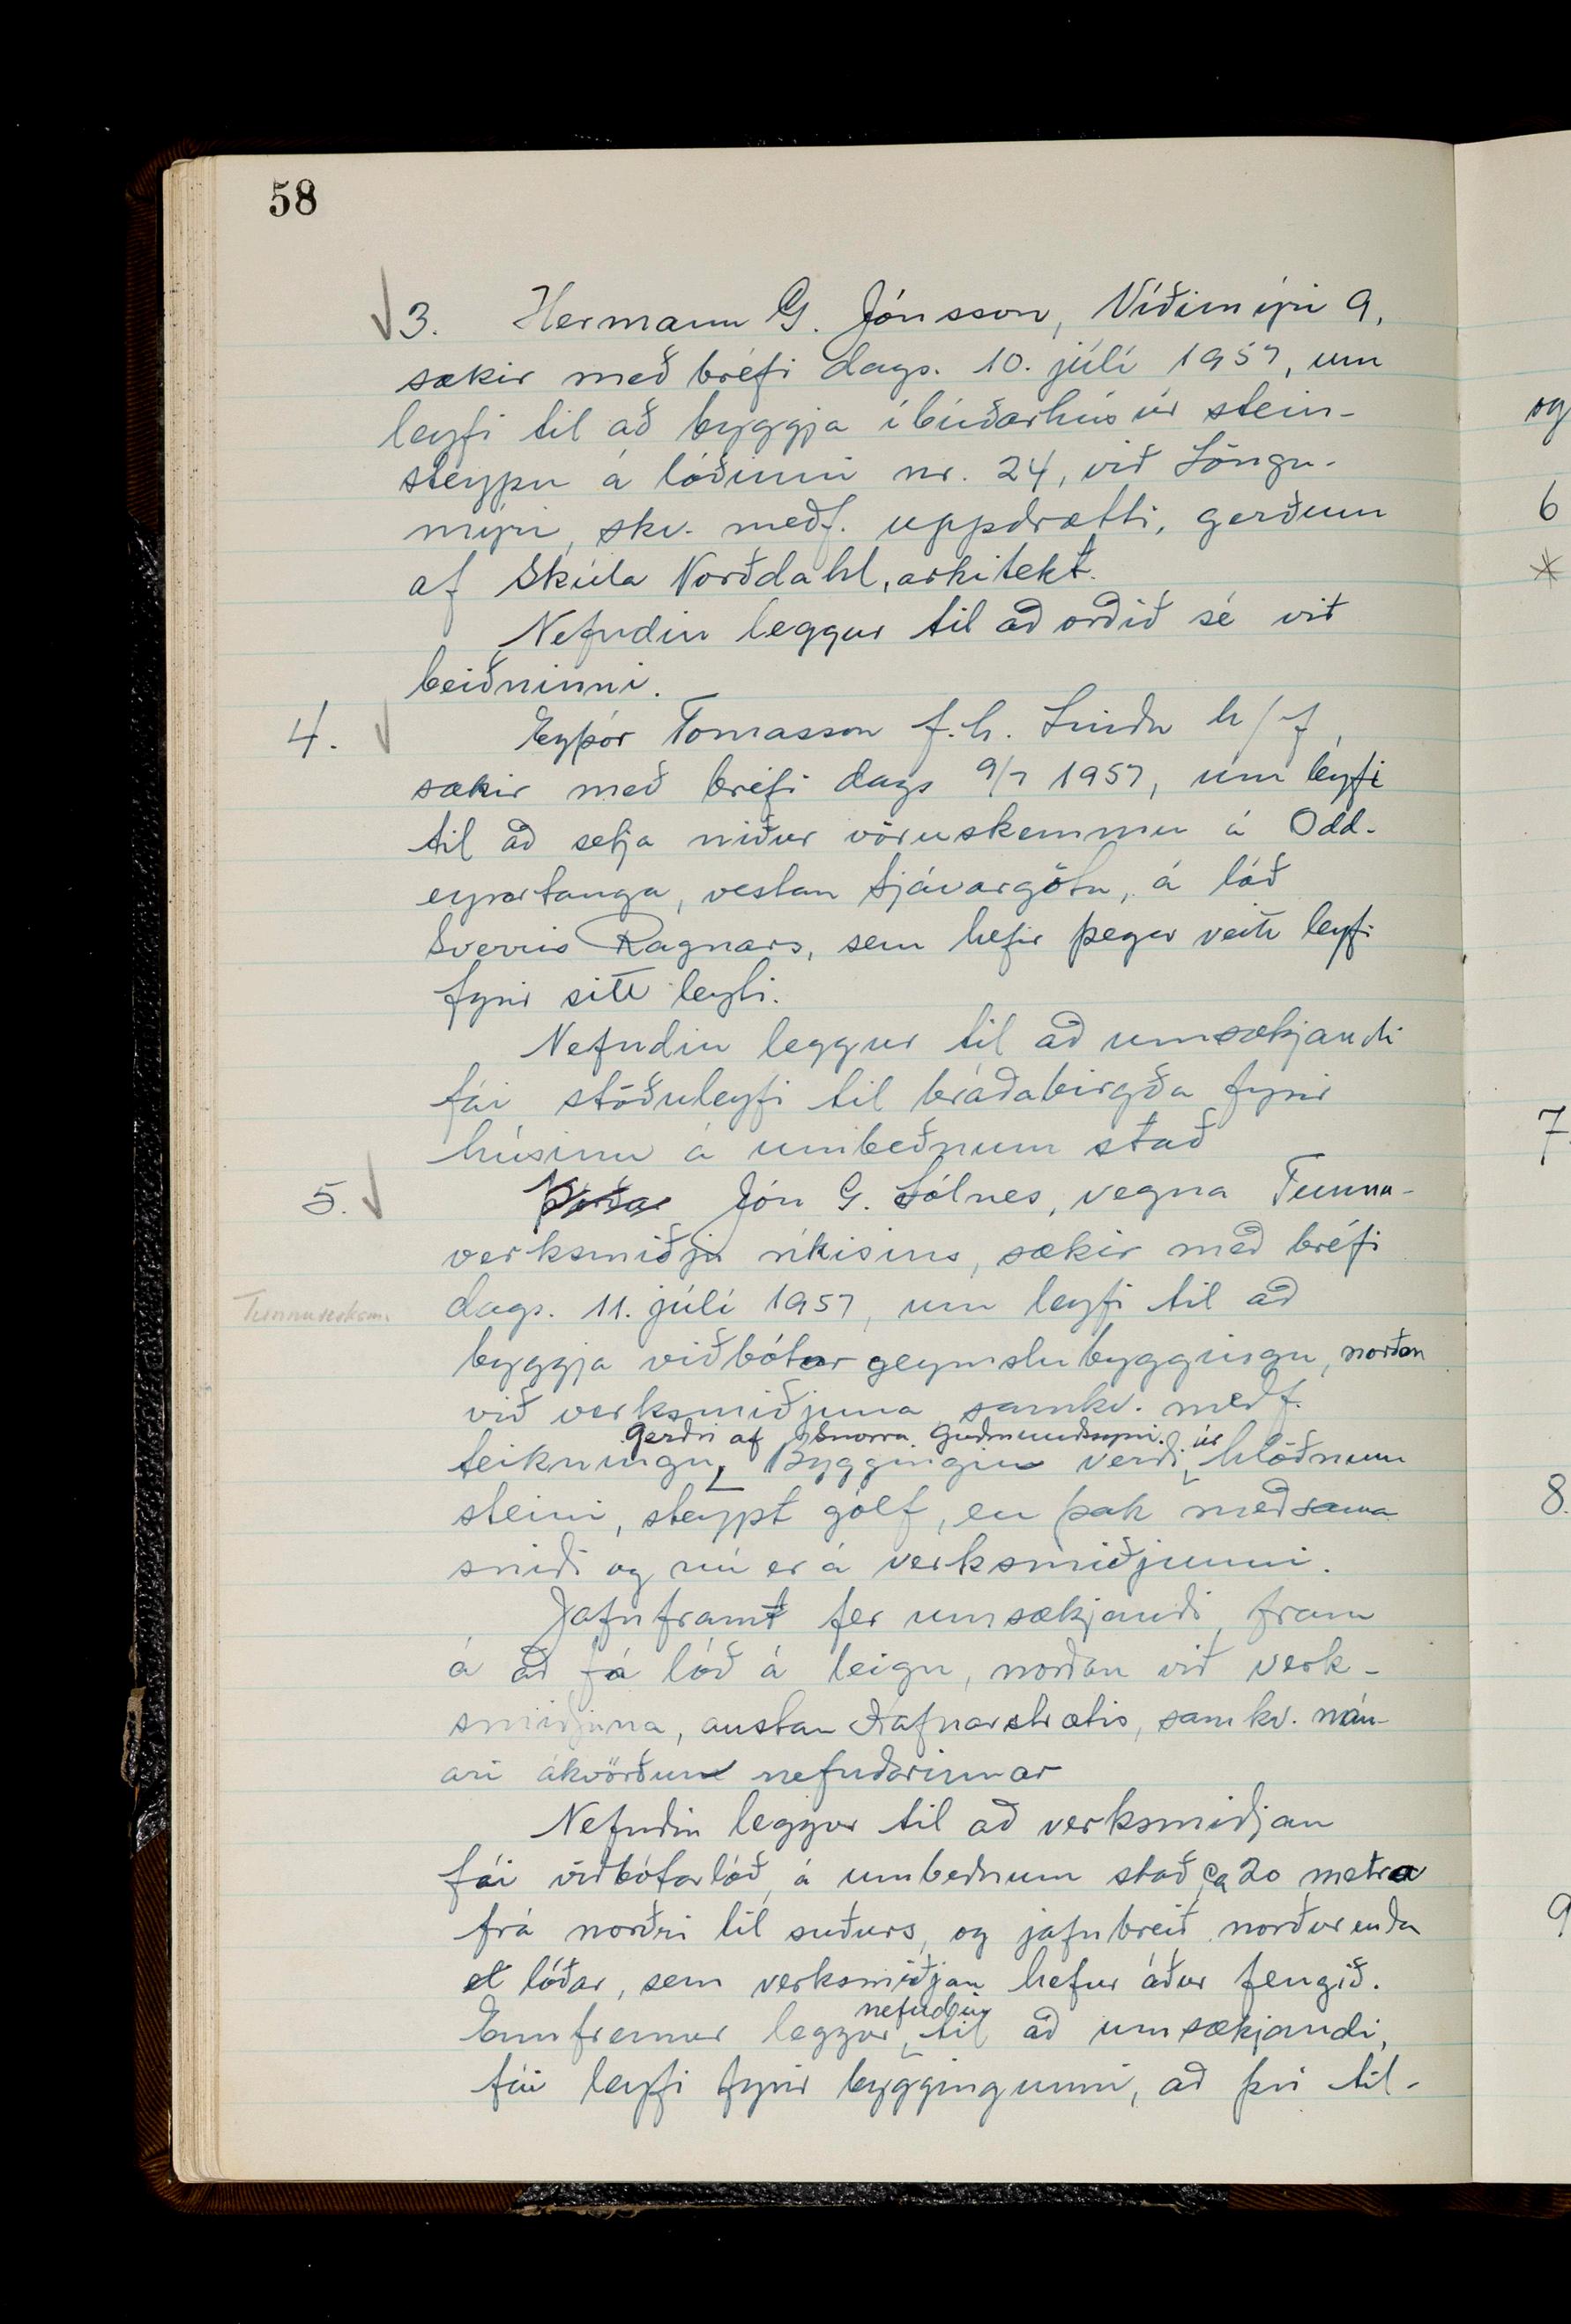 58
3. Hermann G. Jónsson, Víðimýri 9,
sækir með bréfi dags. 10. júlí 1957, um
leyfi til að byggja íbúðarhús úr stein-
steypu á lóðinni nr. 24, við Löngu-
mýri, skv. meðf. uppdrætti, gerðum
af Skúla Norðdahl, arkitekt.
Nefndin leggur til að orðið sé við
beiðninni.
4. Eyþór Tomasson f.h. Lindu h/f,
sækir með bréfi dags 9/7 1957, um leyfi
til að setja niður vöruskemmu á Odd-
eyrartanga, vestan Sjávargötu, á lóð
Sverris Ragnars, sem hefir þegar veitt leyfi
fyrir sitt leyti.
Nefndin leggur til að umsækjandi
fái stöðuleyfi til bráðabirgða fyrir
húsinu á umbeðnum stað
5. Jón G. Sólnes, vegna Tunnu-
verksmiðju ríkisins, sækir með bréfi
Tunnuverksm.
dags. 11. júlí 1957, um leyfi til að
byggja viðbótar geymslubyggingu, norðan
við verksmiðjuna samkv. meðf.
gerðri af Snorra Guðmundssyni. úr
teikningu, Byggingin verði hlöðnum
steini, steypt gólf, en þak með sama
sniði og nú er á verksmiðjunni.
Jafnframt fer umsækjandi fram
á að fá lóð á leigu, norðan við verk-
smiðjuna, austan Hafnarstrætis, samkv. nán-
ari ákvörðun nefndarinnar
Nefndin leggur til að verksmiðjan
fái viðbótarlóð á umbeðnum stað ca 20 metra
frá norðri til suðurs, og jafnbreið norðurenda
lóðar, sem verksmiðjan hefur áður fengið.
nefndin
Ennfremur leggur til að umsækjandi,
fái leyfi fyrir byggingunni, að því til-
og
6
7.
8.
9